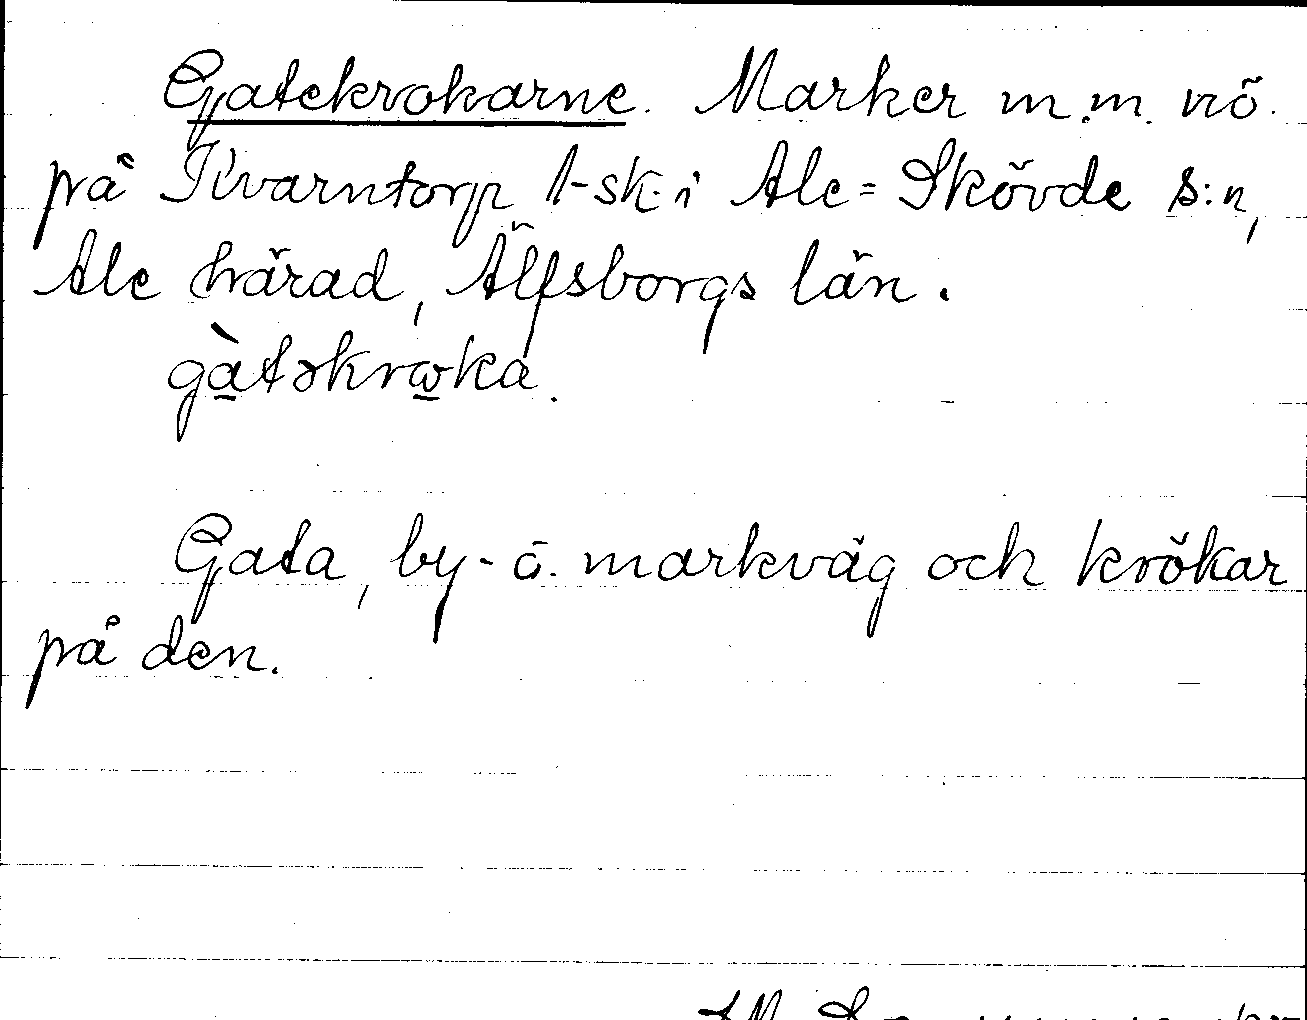 Gatekrokarne. Marker m.m. nö.
på Kvarntorp 1-sk: i Ale=Skövde s:n,
Ale härad, Älfsborgs län.
gàtəkrωka.
Gata, by- o. markväg och krökar
på den.